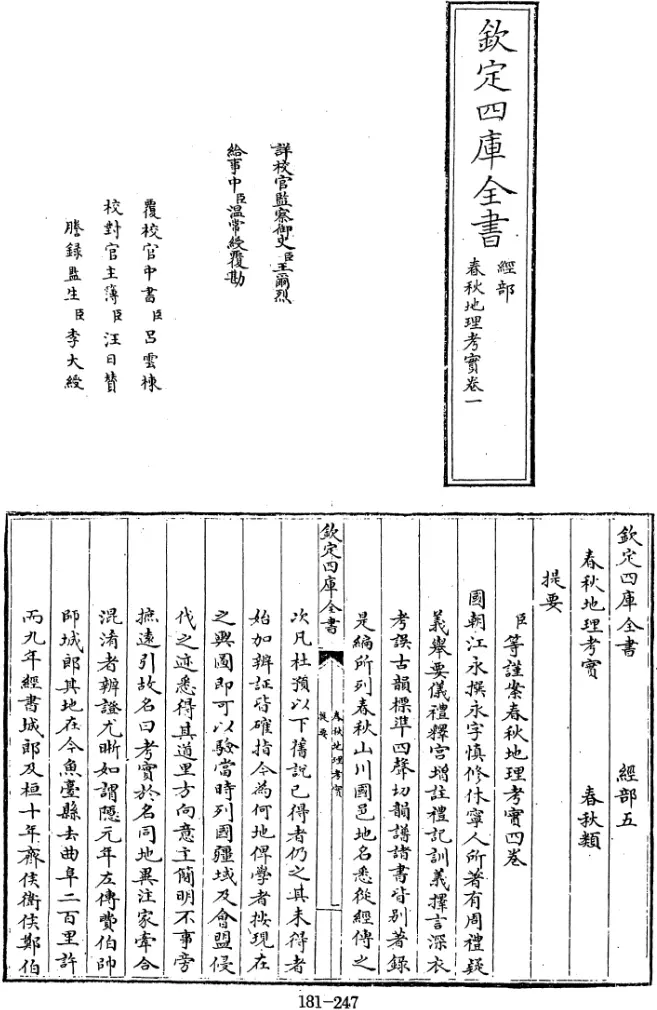 欽定四庫全書
經部
春秋地理考實卷一
詳校官監察御史臣王爾烈
給事中臣溫常綬覆勘
覆校官中書臣呂雲棟
校對官主簿臣汪日贊
謄錄監生臣李大綬
欽定四庫全書 經部五
春秋地理考實 春秋類
提要
臣等謹案春秋地理考實四卷
國朝江永撰永字慎修休寧人所著有周禮疑
義舉要儀禮釋宮增註禮記訓義擇言深衣
考誤古韻標準四聲切韻譜諸書皆别著錄
是編所列春秋山川國邑地名悉從經傳之
欽定四庫全書
春秋地理考實
提要
一
次凡杜預以下舊說已得者仍之其未得者
始加辨証皆確指今為何地俾學者按現在
之輿圖即可以驗當時列國疆域及會盟侵
伐之迹悉得其道里方向意主簡明不事旁
摭遠引故名曰考實於名同地異注家牽合
混淆者辨證尤晰如謂隱元年左傳費伯帥
師城郎其地在今魚臺縣去曲阜二百里許
而九年經書城郎及桓十年齊侯衛侯鄭伯
181-247